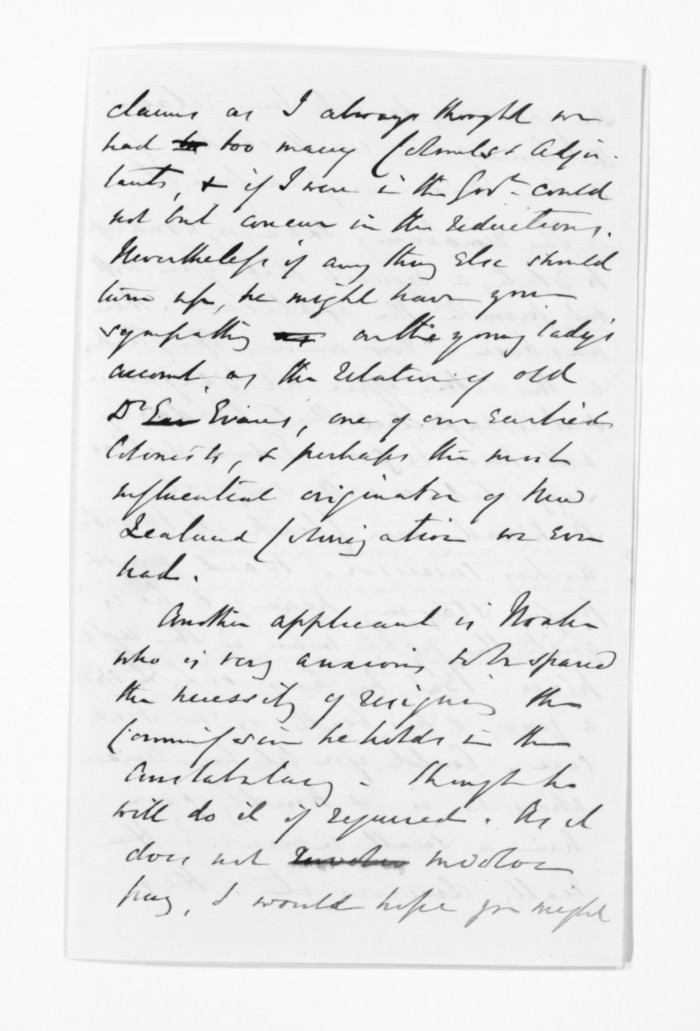 claims as I always thought we
had to too many Colonels & Adju-
tants, & if I were in the Govt. could
not but concur in the reductions.
Nevertheless if any thing else should
turn up, he might have your
sympathy on this young lady's
account, as the relative of old
Dr Evans, one of our earliest
Colonists, & perhaps the most
influential originator of New
Zealand Colonization we ever
had.
Another applicant is Noake
who is very anxious to be spared
the necessity of resigning the
Commission he holds in the
Constabulary - though he
will do it if required. As it
does not involve
pay, I would hope you might